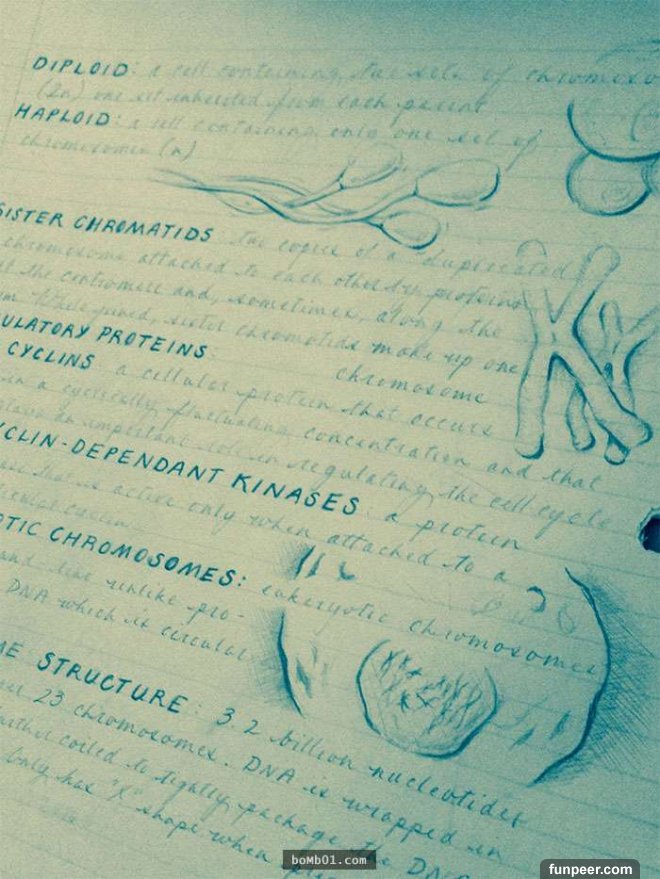 DIPLOID: a cell containing two sets of chromoso
(2n) one set inherited from each parent
HAPLOID: a cell containing only one set of
chromosomes (n)
SISTER CHROMATIDS: two copies of a duplicated
chromosome attached to each other by proteins
at the centromere and, sometimes, along the
While joined, sister chromatids make up one
chromosome
ULATORY PROTEINS:
CYCLINS: a cellular protein that occurs
in a cyclically fluctuating concentration and that
plays an important role in regulating the cell cycle
CLIN-DEPENDANT KINASES: a protein
that is active only when attached to a
OTIC CHROMOSOMES: eukaryotic chromosomes
and line unlike pro-
DNA which is circular
ME STRUCTURE: 3.2 billion nucleotides
23 chromosomes. DNA is wrapped in
coiled to tightly package the DNA
only has "X" shape when
boMb01.com
funpeer.com